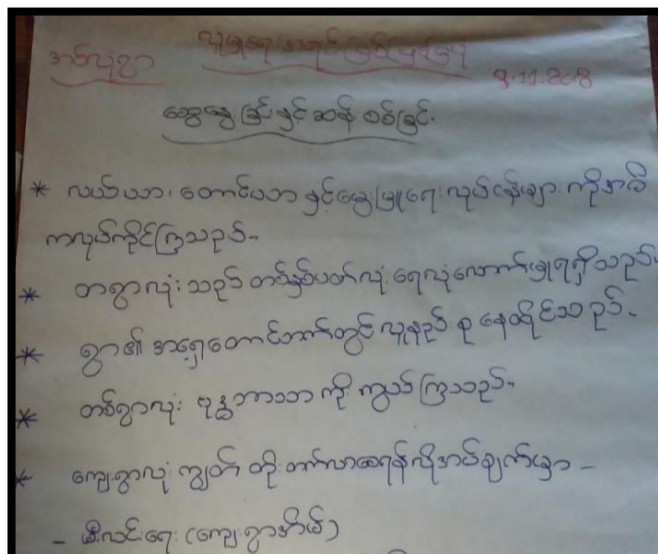 အပ်လုံရွာ လူမှုရေးအရင်းမြစ်ပြမြေပုံ 9.11.2018
ဆွေးနွေးခြင်းနှင့်ဆန်းစစ်ခြင်း
* လယ်ယာ၊ တောင်ယာ နှင့်မွေးမြူရေးလုပ်ငန်းများကိုအဓိ
ကလုပ်ကိုင်ကြသည်။
* တရွာလုံးသည် တစ်နှစ်ပတ်လုံးရေလုံလောက်မှုရရှိသည်။
* ရွာ၏ အရှေ့တောင်ဘက်တွင် လူနည်းစု နေထိုင်သည်။
* တစ်ရွာလုံး ဗုဒ္ဓဘာသာကို ကိုးကွယ်ကြသည်။
* ကျေးရွာလုံးကျွတ် တိုးတက်လာစေရန်လိုအပ်ချက်မှာ -
- မီးလင်းရေး (ကျေးရွာအိမ်)